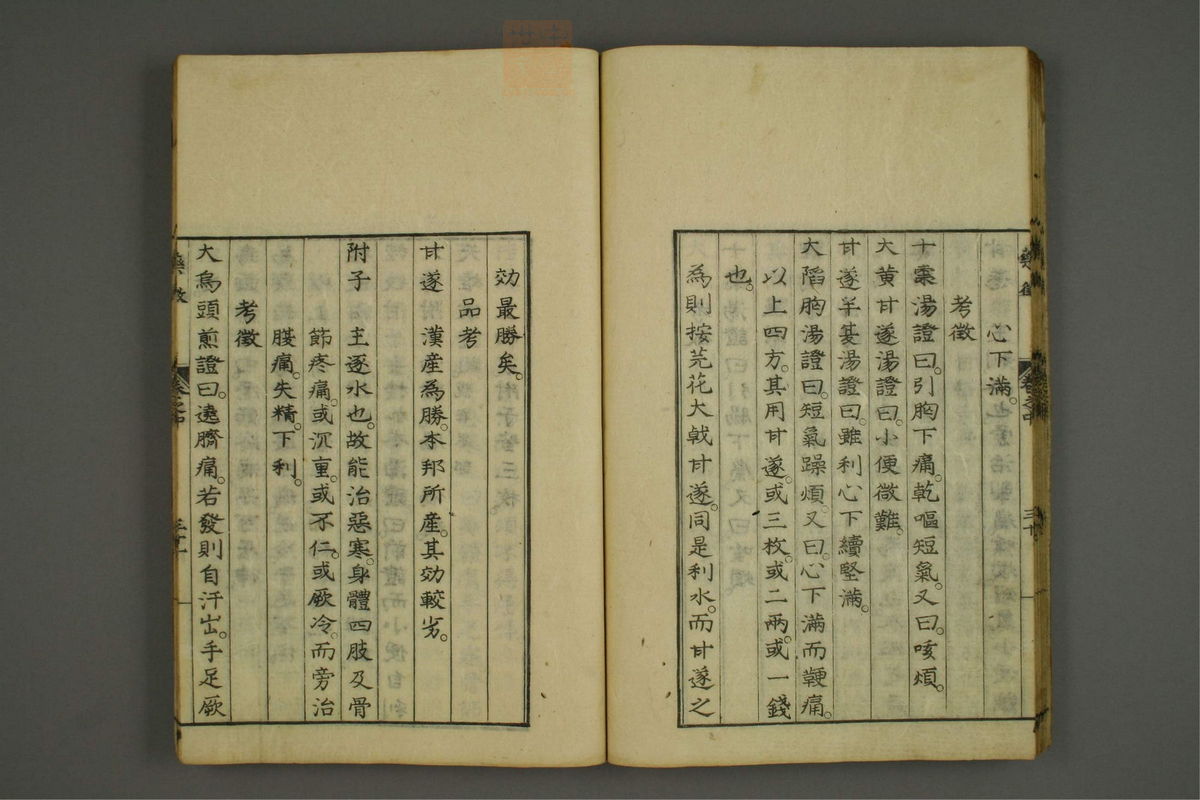 心下滿。
考徵
十棗湯證曰。引胸下痛。乾嘔短氣。又曰。咳煩。
大黄甘遂湯證曰。小便微難。
甘遂半夏湯證曰。雖利心下續堅滿。
大陷胸湯證曰。短氣躁煩。又曰。心下滿而鞕痛。
以上四方。其用甘遂。或三枚。或二兩。或一錢
也。
為則按芫花大戟甘遂。同是利水而甘遂之
藥徵
卷之中
三十
効最勝矣。
品考
甘遂 漢産為勝。本邦所産。其効較劣。
附子 主逐水也。故能治惡寒。身體四肢及骨
節疼痛。或沉重。或不仁。或厥冷。而旁治
腹痛。失精。下利。
考徵
大烏頭煎證曰。遶臍痛。若發則自汗出。手足厥
藥徵
卷之中